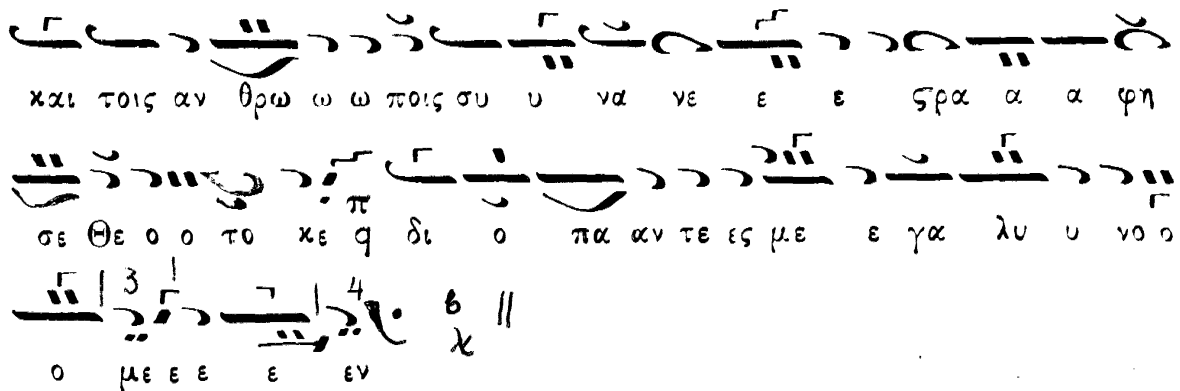 και τοις αν θρω ω ω ποις συ υ να νε ε ε ϛρα α α φη
σε Θε ο ο το κε π q δι ο πα αν τε ες με ε γα λυ υ νο ο
3 4
ο με ε ε ε εν